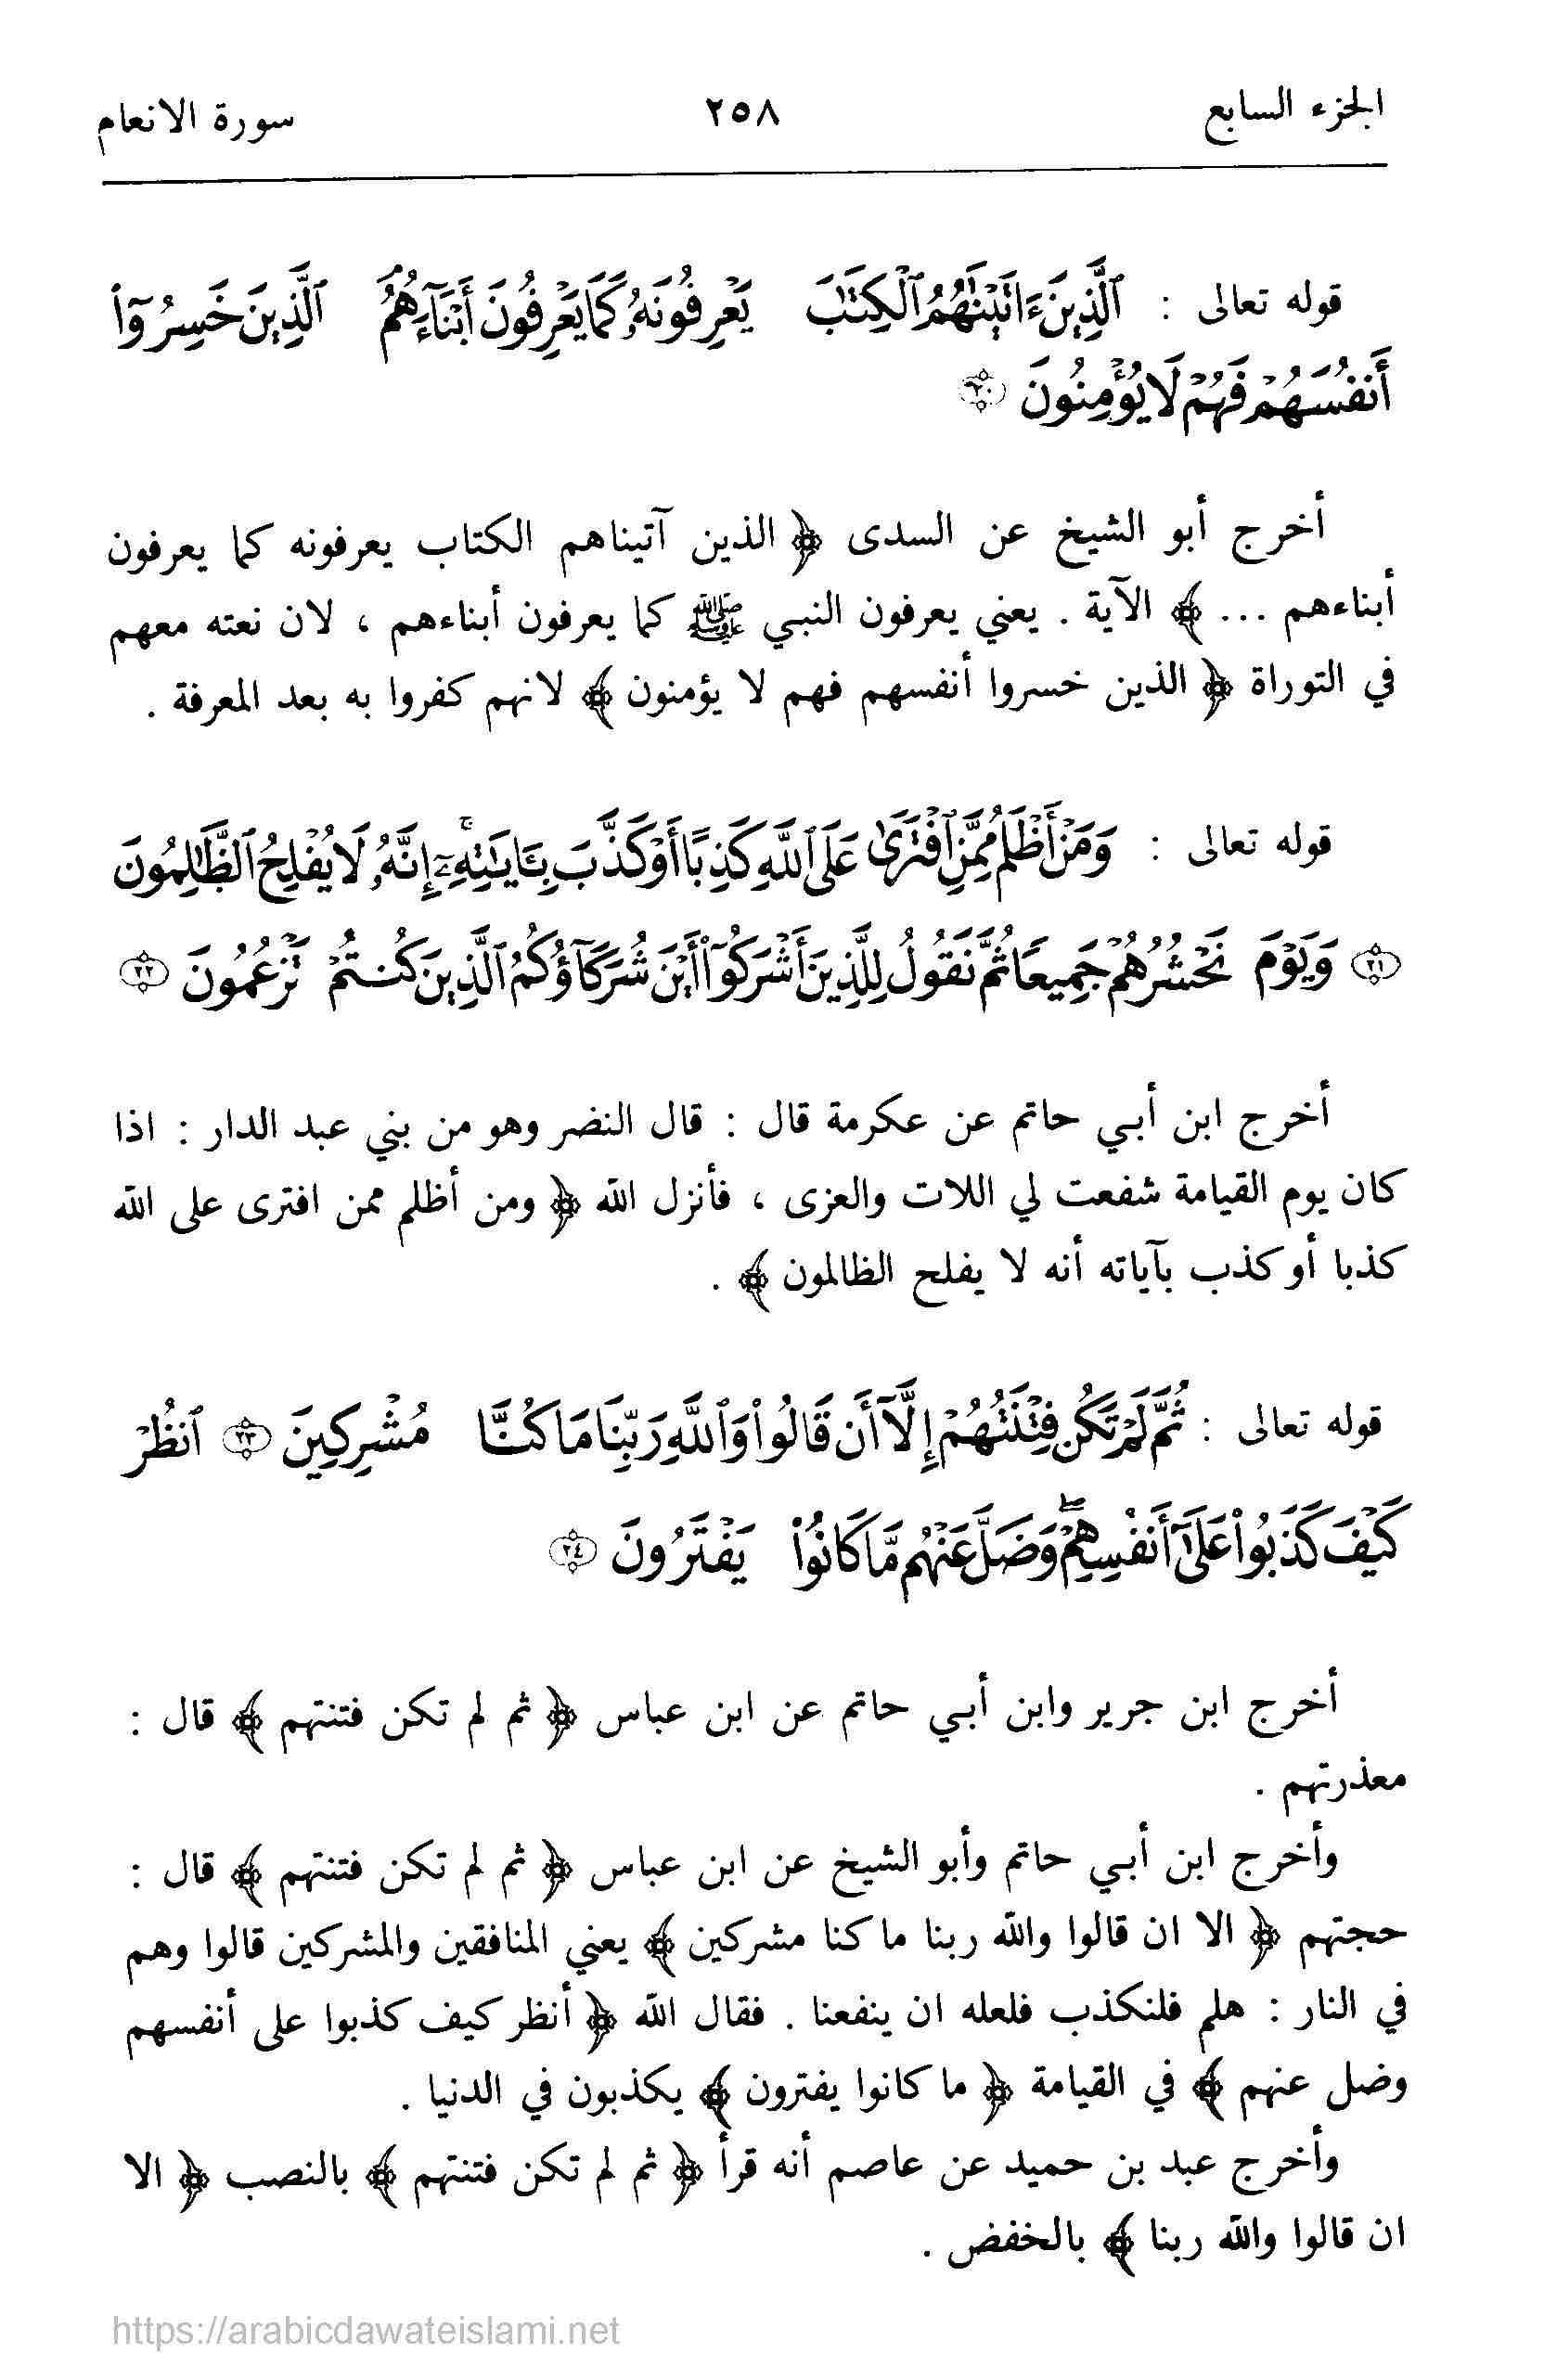 الجزء السابع ٢٥٨ سورة الانعام
قوله تعالى : ٱلَّذِينَ ءَاتَيْنَٰهُمُ ٱلْكِتَٰبَ يَعْرِفُونَهُۥ كَمَا يَعْرِفُونَ أَبْنَآءَهُمُ ٱلَّذِينَ خَسِرُوٓا۟
أَنفُسَهُمْ فَهُمْ لَا يُؤْمِنُونَ ٢٠
أخرج أبو الشيخ عن السدى ﴿ الذين آتيناهم الكتاب يعرفونه كما يعرفون
أبناءهم ... ﴾ الآية . يعني يعرفون النبي ﷺ كما يعرفون أبناءهم ، لان نعته معهم
في التوراة ﴿ الذين خسروا أنفسهم فهم لا يؤمنون ﴾ لانهم كفروا به بعد المعرفة .
قوله تعالى : وَمَنْ أَظْلَمُ مِمَّنِ ٱفْتَرَىٰ عَلَى ٱللَّهِ كَذِبًا أَوْ كَذَّبَ بِـَٔايَٰتِهِۦٓ ۚ إِنَّهُۥ لَا يُفْلِحُ ٱلظَّٰلِمُونَ
٢١ وَيَوْمَ نَحْشُرُهُمْ جَمِيعًا ثُمَّ نَقُولُ لِلَّذِينَ أَشْرَكُوٓا۟ أَيْنَ شُرَكَآؤُكُمُ ٱلَّذِينَ كُنتُمْ تَزْعُمُونَ ٢٢
أخرج ابن أبي حاتم عن عكرمة قال : قال النضر وهو من بني عبد الدار : اذا
كان يوم القيامة شفعت لي اللات والعزى ، فأنزل الله ﴿ ومن أظلم ممن افترى على الله
كذبا أو كذب بآياته أنه لا يفلح الظالمون ﴾ .
قوله تعالى : ثُمَّ لَمْ تَكُن فِتْنَتُهُمْ إِلَّآ أَن قَالُوا۟ وَٱللَّهِ رَبِّنَا مَا كُنَّا مُشْرِكِينَ ٢٣ ٱنظُرْ
كَيْفَ كَذَبُوا۟ عَلَىٰٓ أَنفُسِهِمْ ۖ وَضَلَّ عَنْهُم مَّا كَانُوا۟ يَفْتَرُونَ ٢٤
أخرج ابن جرير وابن أبي حاتم عن ابن عباس ﴿ ثم لم تكن فتنتهم ﴾ قال :
معذرتهم .
وأخرج ابن أبي حاتم وأبو الشيخ عن ابن عباس ﴿ ثم لم تكن فتنتهم ﴾ قال :
حجتهم ﴿ الا ان قالوا والله ربنا ما كنا مشركين ﴾ يعني المنافقين والمشركين قالوا وهم
في النار : هلم فلنكذب فلعله ان ينفعنا . فقال الله ﴿ أنظر كيف كذبوا على أنفسهم
وضل عنهم ﴾ في القيامة ﴿ ما كانوا يفترون ﴾ يكذبون في الدنيا .
وأخرج عبد بن حميد عن عاصم أنه قرأ ﴿ ثم لم تكن فتنتهم ﴾ بالنصب ﴿ الا
ان قالوا والله ربنا ﴾ بالخفض .
https://arabicdawateislami.net